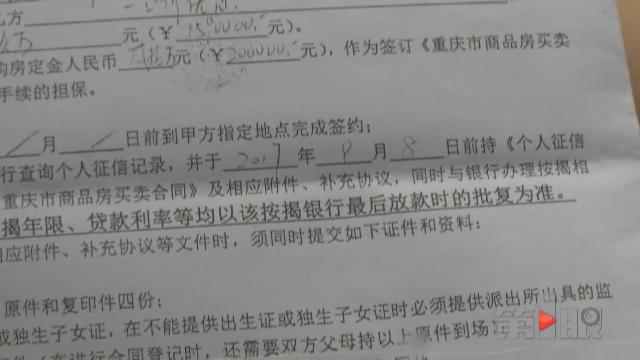 乙方
元（￥1500000.元）。
购房定金人民币 贰拾万元（￥200000.元），作为签订《重庆市商品房买卖
手续的担保。
月 日前到甲方指定地点完成签约；
行查询个人征信记录，并于 2017 年 9 月 8 日前持《个人征信
重庆市商品房买卖合同》及相应附件、补充协议，同时与银行办理按揭相
揭年限、贷款利率等均以该按揭银行最后放款时的批复为准。
相应附件、补充协议等文件时，须同时提交如下证件和资料：
原件和复印件四份；
或独生子女证，在不能提供出生证或独生子女证时必须提供派出所出具的监
在进行合同登记时，还需要双方父母持以上原件到场
第1眼